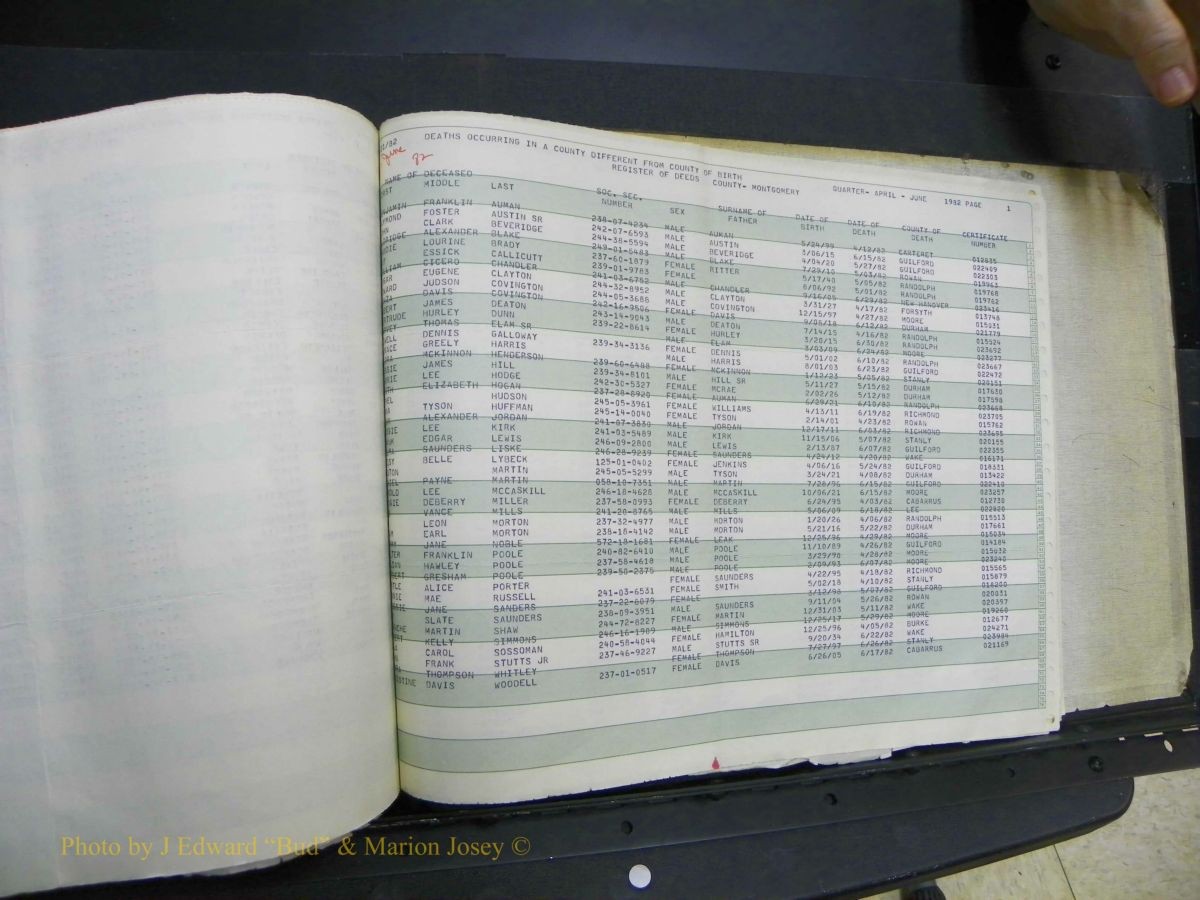 21/82 DEATHS OCCURRING IN A COUNTY DIFFERENT FROM COUNTY OF BIRTH
June 82 REGISTER OF DEEDS COUNTY- MONTGOMERY QUARTER- APRIL - JUNE 1982 PAGE 1
NAME OF DECEASED SOC. SEC. SURNAME OF DATE OF DATE OF COUNTY OF CERTIFICATE
MIDDLE LAST NUMBER SEX FATHER BIRTH DEATH DEATH NUMBER
FRANKLIN AUMAN 238-07-4234 MALE AUMAN 5/24/99 4/12/82 CARTERET 012835
FOSTER AUSTIN SR 242-07-6593 MALE AUSTIN 3/06/15 6/15/82 GUILFORD 022409
CLARK BEVERIDGE 244-38-5594 MALE BEVERIDGE 4/04/20 5/27/82 GUILFORD 022303
ALEXANDER BLAKE 249-01-5483 MALE BLAKE 7/29/10 5/03/82 ROWAN 019963
LOURINE BRADY 237-60-1879 FEMALE RITTER 5/17/40 5/05/82 RANDOLPH 019768
ESSICK CALLICUTT 239-01-9783 FEMALE 8/06/92 5/01/82 RANDOLPH 019762
CICERO CHANDLER 241-03-6752 MALE CHANDLER 9/16/05 6/29/82 NEW HANOVER 023416
EUGENE CLAYTON 244-32-8952 MALE CLAYTON 3/31/27 4/17/82 FORSYTH 013748
JUDSON COVINGTON 244-05-3688 MALE COVINGTON 12/15/97 4/27/82 MOORE 015031
DAVIS COVINGTON 242-16-9506 FEMALE DAVIS 9/06/18 6/12/82 DURHAM 021779
JAMES DEATON 243-14-9043 MALE DEATON 7/14/15 4/16/82 RANDOLPH 015524
HURLEY DUNN 239-22-8614 FEMALE HURLEY 3/20/15 6/30/82 RANDOLPH 023692
THOMAS ELAM SR MALE ELAM 3/03/09 6/24/82 MOORE 023277
DENNIS GALLOWAY 239-34-3136 FEMALE DENNIS 5/01/02 6/10/82 RANDOLPH 023667
GREELY HARRIS MALE HARRIS 8/01/03 6/23/82 GUILFORD 022472
MCKINNON HENDERSON 239-60-6488 FEMALE MCKINNON 1/12/23 5/05/82 STANLY 020151
JAMES HILL 239-34-8101 MALE HILL SR 5/11/27 5/15/82 DURHAM 017630
LEE HODGE 242-30-5327 FEMALE MCRAE 2/02/26 5/12/82 DURHAM 017598
ELIZABETH HOGAN 237-28-8920 FEMALE AUMAN 6/29/21 6/10/82 RANDOLPH 023668
HUDSON 245-05-3961 FEMALE WILLIAMS 4/13/11 6/19/82 RICHMOND 023705
TYSON HUFFMAN 245-14-0040 FEMALE TYSON 2/14/01 4/23/82 ROWAN 015762
ALEXANDER JORDAN 241-07-3830 MALE JORDAN 12/17/11 6/03/82 RICHMOND 023695
LEE KIRK 241-03-5489 MALE KIRK 11/15/06 5/07/82 STANLY 020155
EDGAR LEWIS 246-09-2800 MALE LEWIS 2/13/07 6/07/82 GUILFORD 022355
SAUNDERS LISKE 246-28-9239 FEMALE SAUNDERS 4/24/12 4/20/82 WAKE 016171
BELLE LYBECK 125-01-0402 FEMALE JENKINS 4/06/16 5/24/82 GUILFORD 018331
MARTIN 245-05-5299 MALE TYSON 3/24/21 4/08/82 DURHAM 013422
PAYNE MARTIN 058-10-7351 MALE MARTIN 7/28/96 6/15/82 GUILFORD 022410
LEE MCCASKILL 246-18-4628 MALE MCCASKILL 10/06/21 6/15/82 MOORE 023257
DEBERRY MILLER 237-58-0993 FEMALE DEBERRY 6/24/95 4/03/82 CABARRUS 012730
VANCE MILLS 241-20-8765 MALE MILLS 5/06/09 6/18/82 LEE 022820
LEON MORTON 237-32-4977 MALE MORTON 1/20/26 4/06/82 RANDOLPH 015513
EARL MORTON 238-18-4142 MALE MORTON 5/21/16 5/22/82 DURHAM 017661
JANE NOBLE 572-18-1681 FEMALE LEAK 12/25/96 4/29/82 MOORE 015034
FRANKLIN POOLE 240-82-6410 MALE POOLE 11/10/89 4/26/82 GUILFORD 014184
HAWLEY POOLE 237-58-4618 MALE POOLE 3/29/90 4/28/82 MOORE 015032
GRESHAM POOLE 239-50-2375 MALE POOLE 2/09/93 6/07/82 MOORE 023240
ALICE PORTER FEMALE SAUNDERS 4/22/95 4/18/82 RICHMOND 015565
MAE RUSSELL 241-03-6531 FEMALE SMITH 5/02/18 4/10/82 STANLY 015879
JANE SANDERS 237-22-6079 FEMALE 3/12/98 5/07/82 GUILFORD 018200
SLATE SAUNDERS 238-09-3951 MALE SAUNDERS 9/11/04 5/26/82 ROWAN 020031
MARTIN SHAW 244-72-8227 FEMALE MARTIN 12/31/03 5/11/82 WAKE 020397
KELLY SIMMONS 246-16-1909 MALE SIMMONS 12/25/17 5/29/82 MOORE 019260
CAROL SOSSOMAN 240-58-4044 FEMALE HAMILTON 12/25/96 4/05/82 BURKE 012677
FRANK STUTTS JR 237-46-9227 MALE STUTTS SR 9/20/34 6/22/82 WAKE 024271
THOMPSON WHITLEY FEMALE THOMPSON 7/27/97 6/26/82 STANLY 023984
DAVIS WOODELL 237-01-0517 FEMALE DAVIS 6/26/05 6/17/82 CABARRUS 021169
Photo by J Edward “Bud” & Marion Josey ©